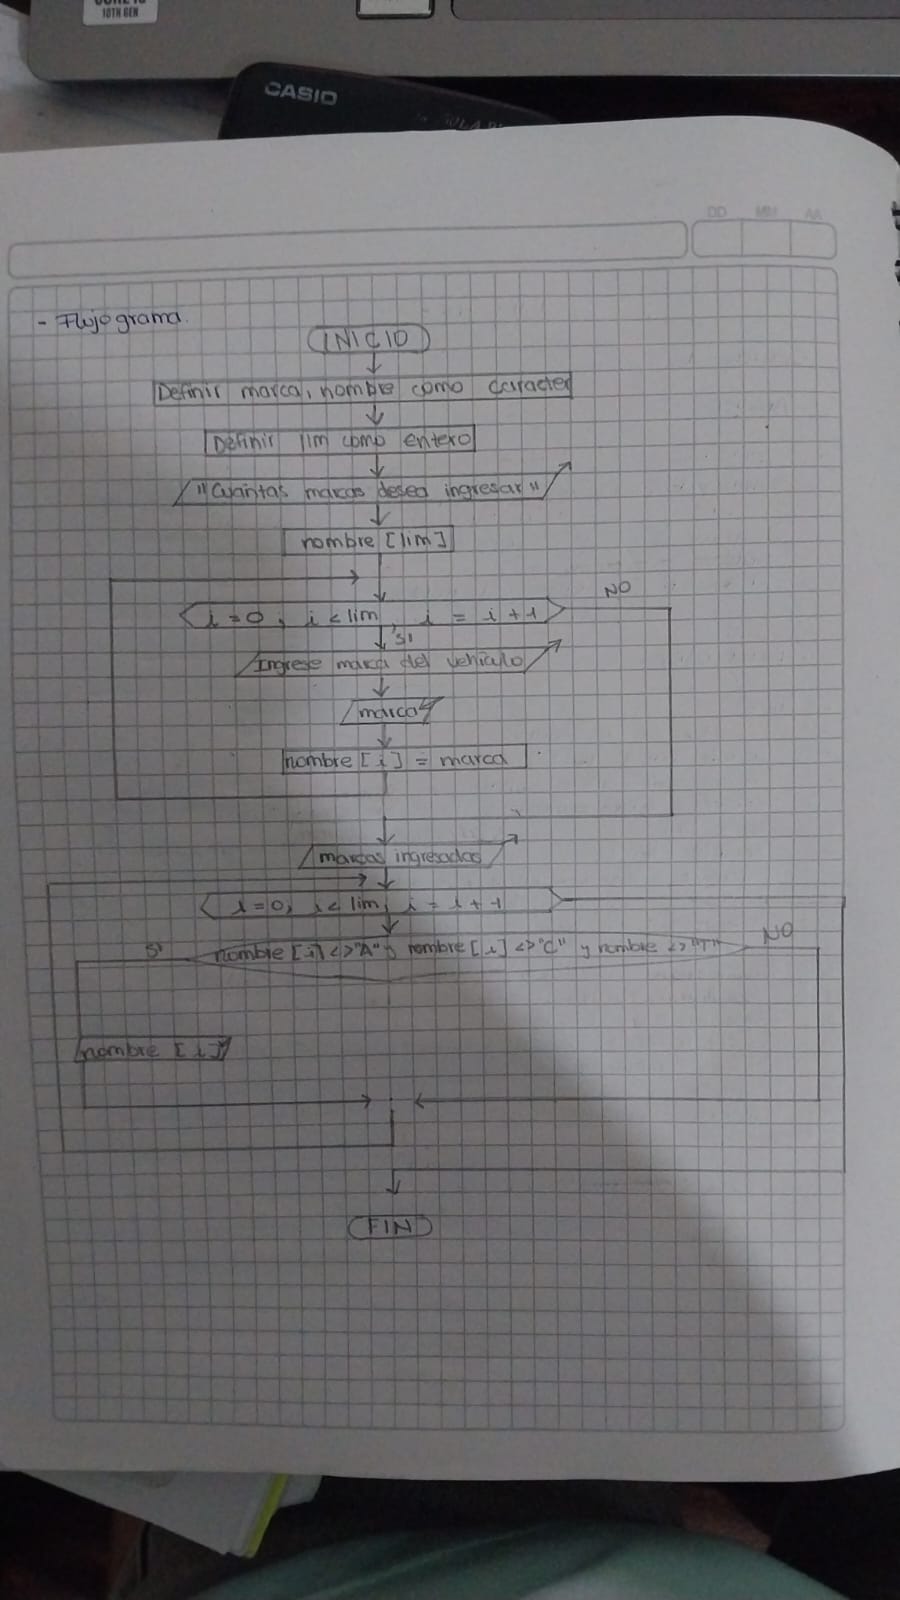 10TH GEN
CASIO
DD MM AA
- Flujograma.
INICIO
Definir marca, nombre como caracter
Definir lim como entero
"Cuantas marcas desea ingresar"
nombre [lim]
i = 0, i < lim, i = i + 1
NO
SI
Ingrese marca del vehiculo
marca
nombre [i] = marca
marcas ingresadas
i = 0, i < lim, i = i + 1
SI
nombre [i] <> "A" y nombre [i] <> "C" y nombre <> "T"
NO
nombre [i]
FIN